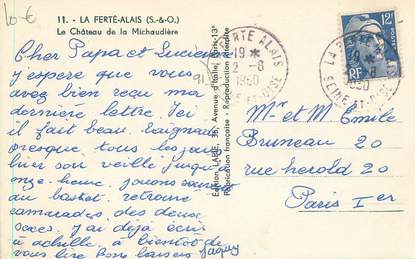 10 €
11. - LA FERTÉ-ALAIS (S.-&-O.)
Le Château de la Michaudière
Cher Papa et Lucienne
j'espère que vous
avez bien reçu ma
dernière lettre. Ici
il fait beau. Baignade
presque tous les jours
hier soir veillé jusqu'
onze heure. jouons souvent
au basket. retrouve
camarades des deux
sexes. j'ai déjà écrit
à achille. à bientôt de
vous lire Bons baisers
Jacquy
Edition LABIE, 35, Avenue d'Italie, Paris-13e
Fabrication française - Reproduction interdite
LA FERTE ALAIS
19 *
2 -8
1950
SEINE-ET-OISE
LA FERTE ALAIS
-8
1950
SEINE-ET-OISE
12F
RF
Mr et Mme Emile
Bruneau 20
rue herold 20
Paris Ier